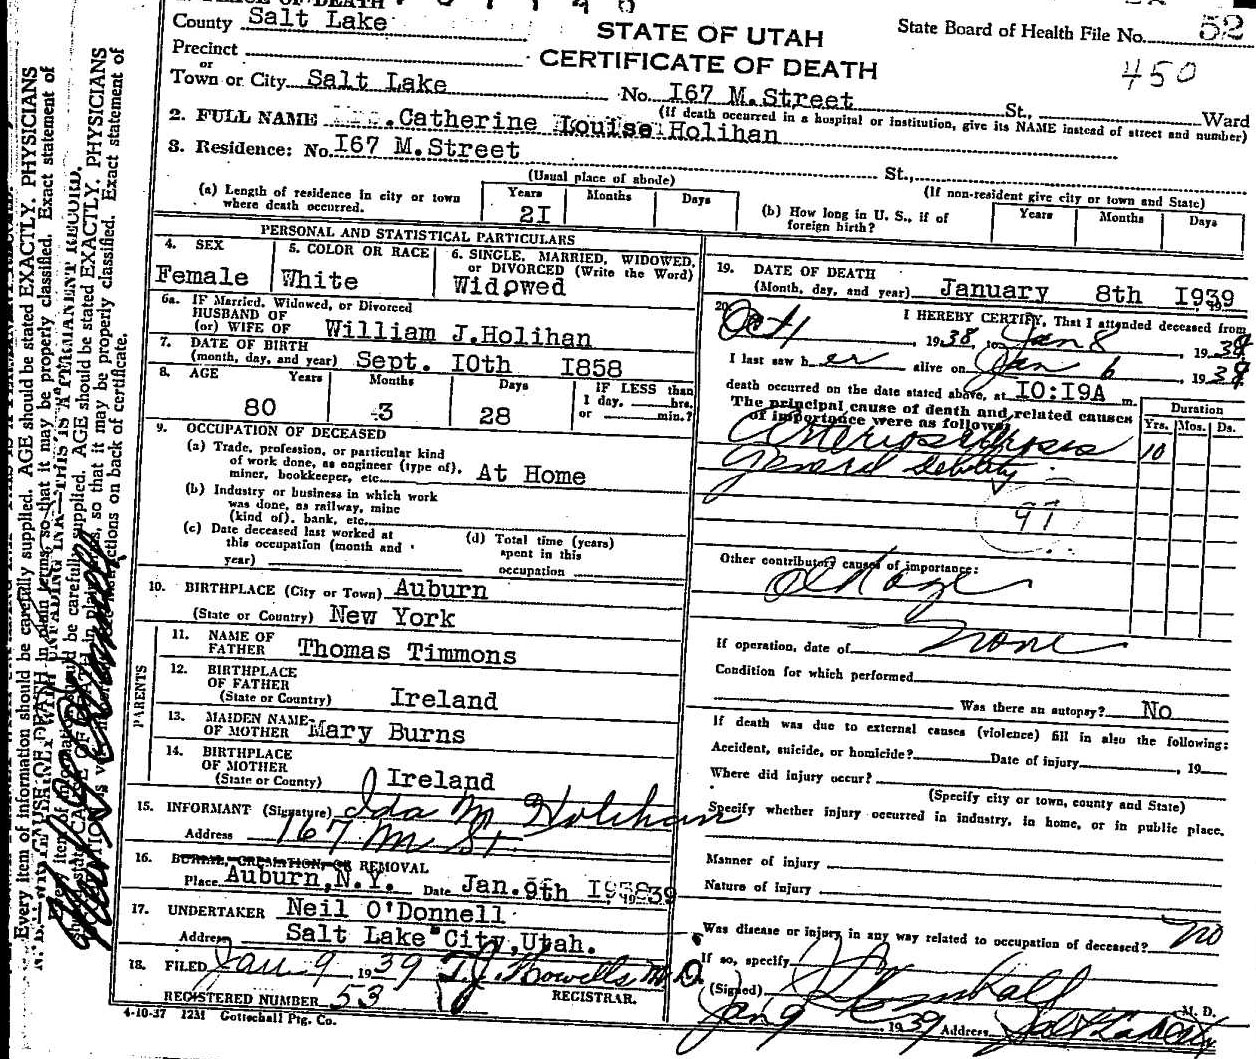 County Salt Lake
STATE OF UTAH
State Board of Health File No. 52
Precinct
or
CERTIFICATE OF DEATH
450
Town or City Salt Lake No. I67 M.Street St., Ward
(If death occurred in a hospital or institution, give its NAME instead of street and number)
2. FULL NAME Catherine Louise Holihan
3. Residence: No. I67 M.Street St.,
(Usual place of abode)
(If non-resident give city or town and State)
(a) Length of residence in city or town where death occurred. Years 2I Months Days
(b) How long in U. S., if of foreign birth? Years Months Days
PERSONAL AND STATISTICAL PARTICULARS
4. SEX Female
5. COLOR OR RACE White
6. SINGLE, MARRIED, WIDOWED, or DIVORCED (Write the Word) Widowed
6a. IF Married, Widowed, or Divorced
HUSBAND OF
(or) WIFE OF William J.Holihan
7. DATE OF BIRTH
(month, day, and year) Sept. IOth I858
8. AGE Years 80 Months 3 Days 28
IF LESS than
1 day, hrs.
or min.?
9. OCCUPATION OF DECEASED
(a) Trade, profession, or particular kind
of work done, as engineer (type of),
miner, bookkeeper, etc. At Home
(b) Industry or business in which work
was done, as railway, mine
(kind of), bank, etc.
(c) Date deceased last worked at
this occupation (month and
year)
(d) Total time (years)
spent in this
occupation
10. BIRTHPLACE (City or Town) Auburn
(State or Country) New York
PARENTS
11. NAME OF
FATHER Thomas Timmons
12. BIRTHPLACE
OF FATHER
(State or Country) Ireland
13. MAIDEN NAME
OF MOTHER Mary Burns
14. BIRTHPLACE
OF MOTHER
(State or Country) Ireland
15. INFORMANT (Signature) Ida M Holihan
Address 167 M St.
16. BURIAL, CREMATION, OR REMOVAL
Place Auburn,N.Y. Date Jan.9th 39
17. UNDERTAKER Neil O'Donnell
Address Salt Lake City,Utah.
18. FILED Jan 9 1939 T.J. Howells M D.
REGISTERED NUMBER 53 REGISTRAR.
4-10-37 12M Gottschall Ptg. Co.
19. DATE OF DEATH
(Month, day, and year) January 8th I939
20. I HEREBY CERTIFY, That I attended deceased from
Oct 1, 1938, to Jan 8, 1939
I last saw her alive on Jan 6, 1939
death occurred on the date stated above, at IO:I9A m.
The principal cause of death and related causes
of importance were as follows:
Duration
Yrs. Mos. Ds.
Arteriosclerosis 10
General debility
97
Other contributory causes of importance:
Old age
If operation, date of None
Condition for which performed
Was there an autopsy? No
If death was due to external causes (violence) fill in also the following:
Accident, suicide, or homicide? Date of injury , 19
Where did injury occur?
(Specify city or town, county and State)
Specify whether injury occurred in industry, in home, or in public place.
Manner of injury
Nature of injury
Was disease or injury in any way related to occupation of deceased? no
If so, specify
(Signed) M. D.
Jan 9 1939 Address Salt Lake City
Every item of information should be carefully supplied. AGE should be stated EXACTLY. PHYSICIANS